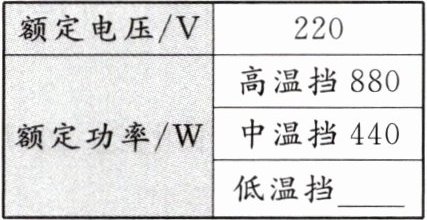 额定电压/V 220
额定功率/W 高温挡 880
中温挡 440
低温挡____